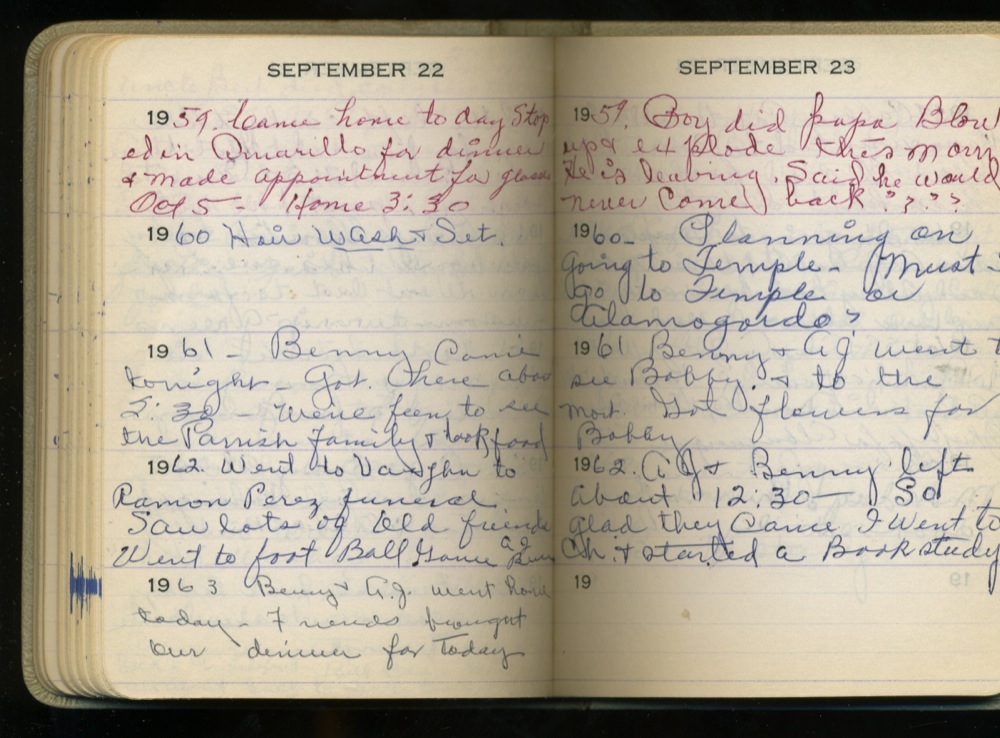 SEPTEMBER 22
1959. Came home to day Stop
ed in Amarillo for dinner
& made appointment for glasses
Oct 5 - Home 3:30
1960 Hair Wash & Set.
1961 - Benny Came
tonight - Got there abou
5:30 - Went to see
the Parrish family & took food
1962. Went to Vaughn to
Ramon Perez funeral
Saw lots of Old friends
Went to foot Ball Game AJ
1963 Benny & A.J. went home
today - Friends brought
our dinner for Today
SEPTEMBER 23
1959. Boy did papa Blow
up & explode this morn
He is leaving. Said he would
never Come back ? ? ? ?
1960 - Planning on
going to Temple - (Must I
go to Temple or
Alamogordo ?
1961 Benny & AJ went t
see Bobby. & to the
mort. Got flowers for
Bobby
1962. AJ & Benny left
about 12:30 — So
glad they Came I Went to
Ch. & started a Book study
19